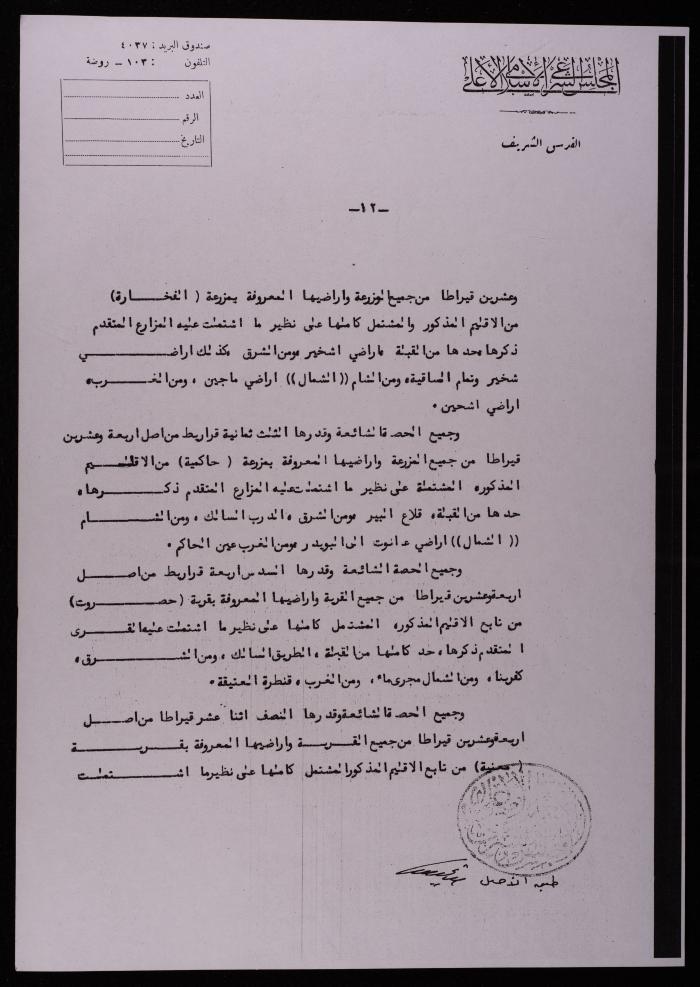 المجلس الشرعي الإسلامي الأعلى
القدس الشريف
صندوق البريد : ٤٠٣٧
التلفون : ١٠٣ – روضة
العدد
الرقم
التاريخ
–١٢–
وعشرين قيراطا من جميع المزرعة واراضيها المعروفة بمزرعة ( الفخارة)
من الاقليم المذكور والمشتمل كاملها على نظير ما اشتملت عليه المزارع المتقدم
ذكرها، حدها من القبلة، اراضي اشخير ومن الشرق كذلك اراضي
شخير وتمام الساقية، ومن الشام (( الشمال)) اراضي ماجين ، ومن الغرب،
اراضي اشحين .
وجميع الحصة الشائعة وقدرها الثلث ثمانية قراريط من اصل اربعة وعشرين
قيراطا من جميع المزرعة واراضيها المعروفة بمزرعة ( حاكمية) من الاقليم
المذكور، المشتملة على نظير ما اشتملت عليه المزارع المتقدم ذكرها،
حدها من القبلة، قلاع البير ومن الشرق ، الدرب السالك ، ومن الشام
(( الشمال)) اراضي عانوت الى البويدر ومن الغرب عين الحاكم .
وجميع الحصة الشائعة وقدرها السدس اربعة قراريط من اصل
اربعة وعشرين قيراطا من جميع القرية واراضيها المعروفة بقرية ( حصروت)
من تابع الاقليم المذكور، المشتمل كاملها على نظير ما اشتملت عليه القرى
المتقدم ذكرها، حد كاملها من القبلة ، الطريق السالك ، ومن الشرق،
كفرينا، ومن الشمال مجرى ماء، ومن الغرب، قنطرة العتيقة .
وجميع الحصة الشائعة وقدرها النصف اثنا عشر قيراطا من اصل
اربعة وعشرين قيراطا من جميع القرية واراضيها المعروفة بقرية
( معنية) من تابع الاقليم المذكور المشتمل كاملها على نظير ما اشتملت
طبق الأصل